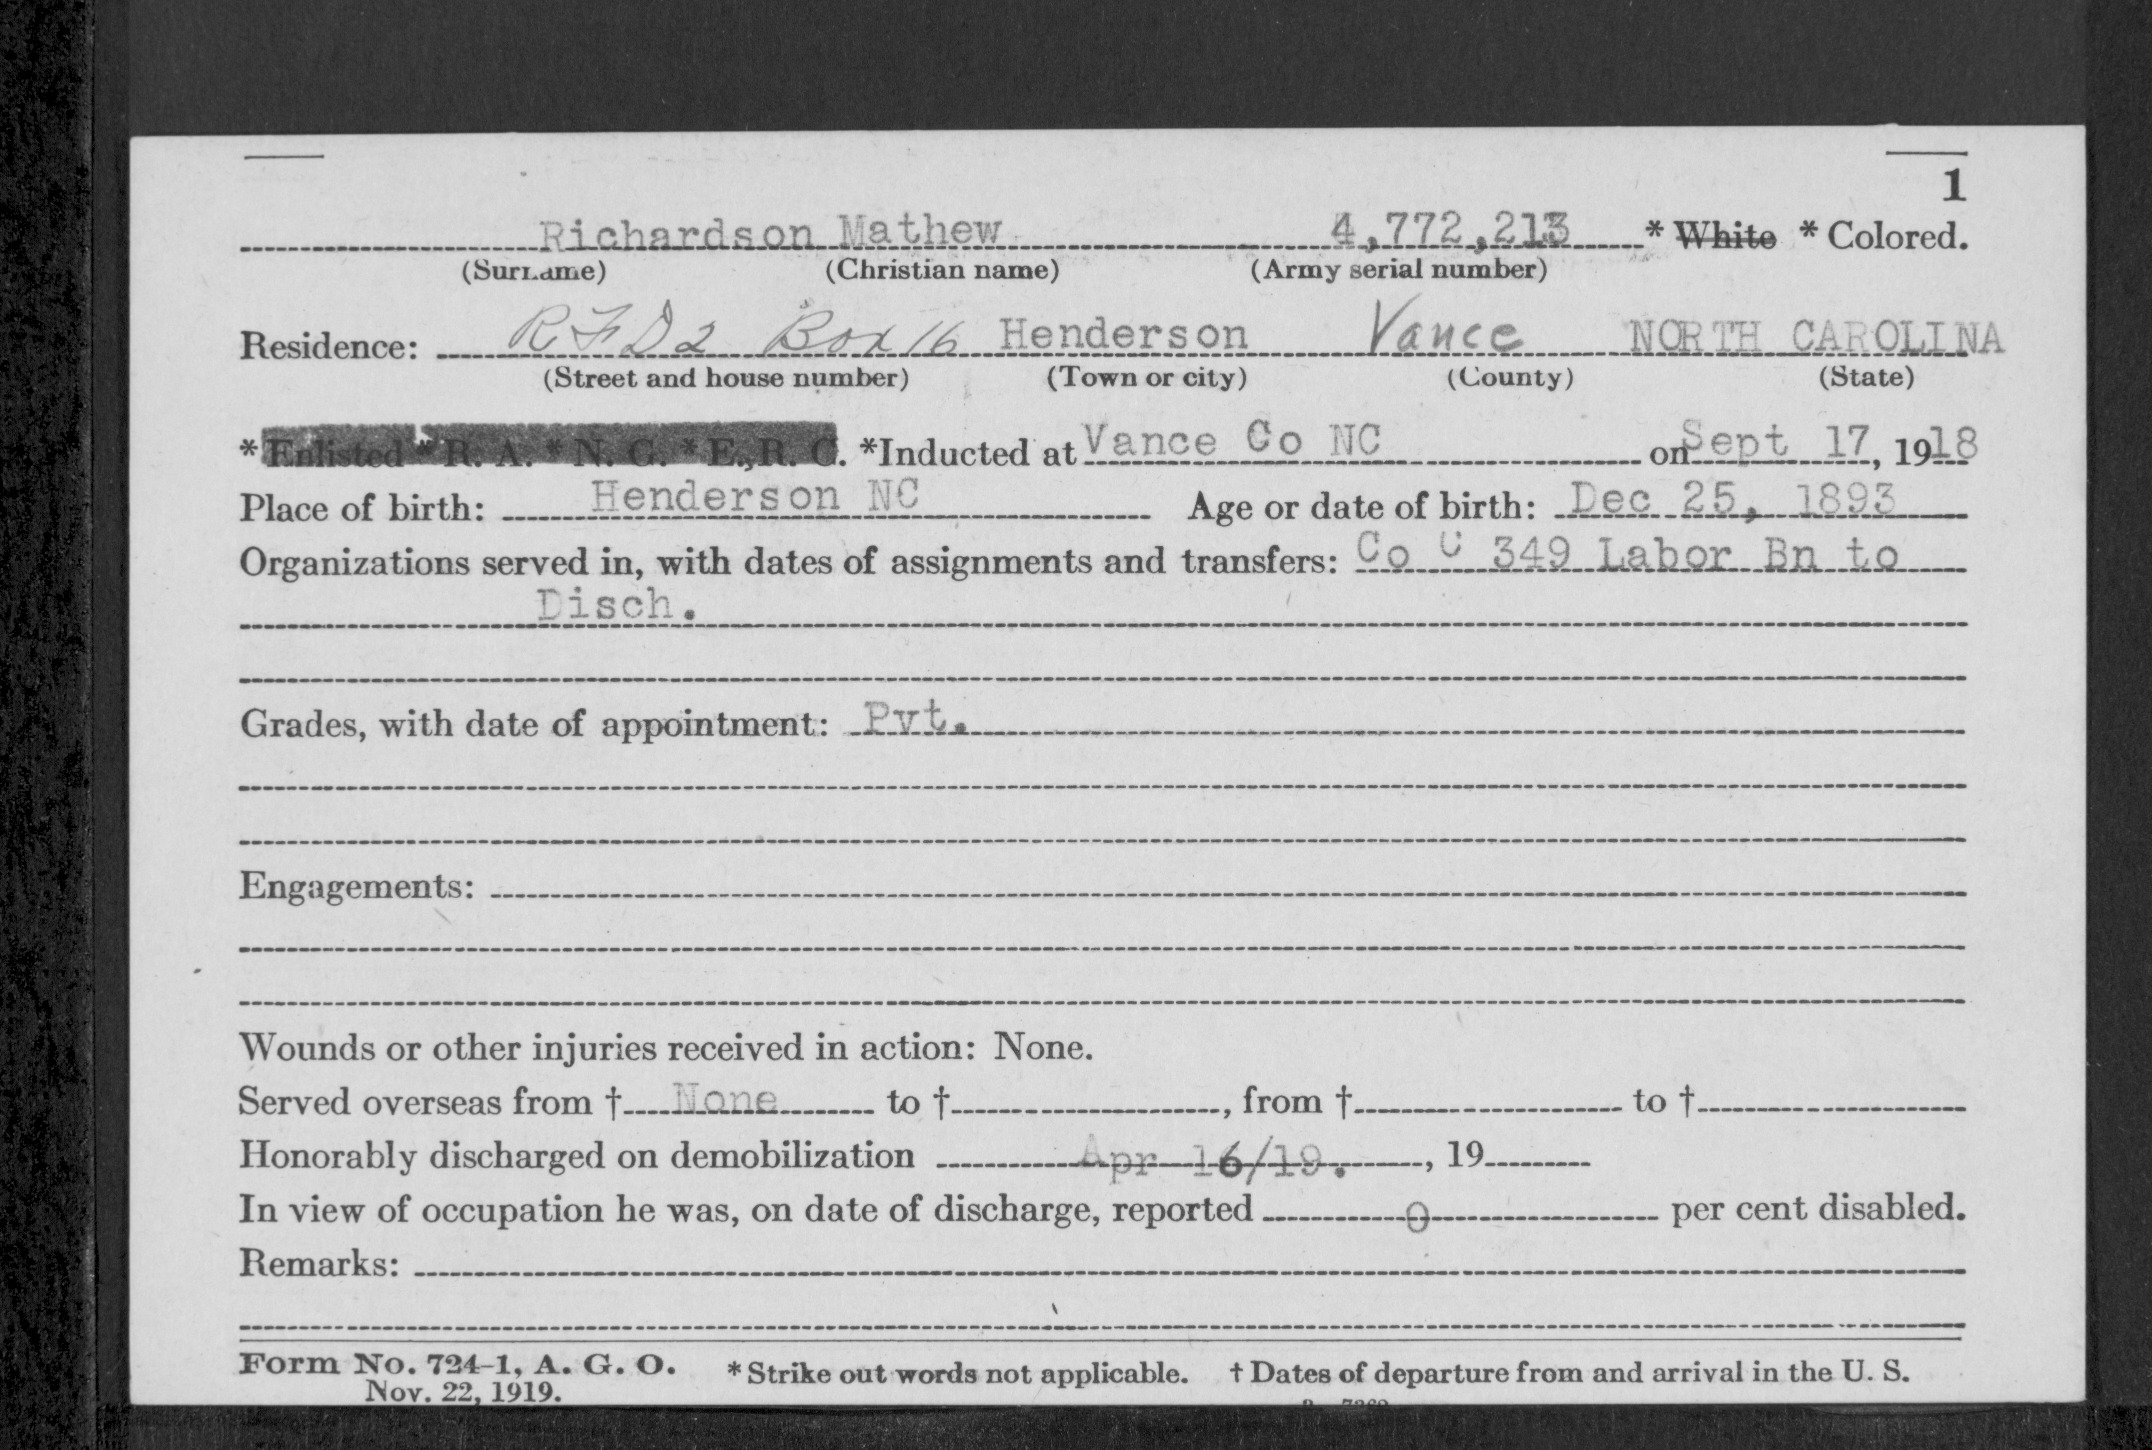 1
Richardson Mathew 4,772,213 * White * Colored.
(Surname) (Christian name) (Army serial number)
Residence: R F D 2 Box 16 Henderson Vance NORTH CAROLINA
(Street and house number) (Town or city) (County) (State)
* Enlisted * R. A. * N. G. * E. R. C. *Inducted at Vance Co NC on Sept 17, 1918
Place of birth: Henderson NC Age or date of birth: Dec 25, 1893
Organizations served in, with dates of assignments and transfers: Co C 349 Labor Bn to
Disch.
Grades, with date of appointment: Pvt.
Engagements:
Wounds or other injuries received in action: None.
Served overseas from † None to †, from † to †
Honorably discharged on demobilization Apr 16/19. , 19
In view of occupation he was, on date of discharge, reported 0 per cent disabled.
Remarks:
Form No. 724-1, A. G. O. * Strike out words not applicable. † Dates of departure from and arrival in the U. S.
Nov. 22, 1919.